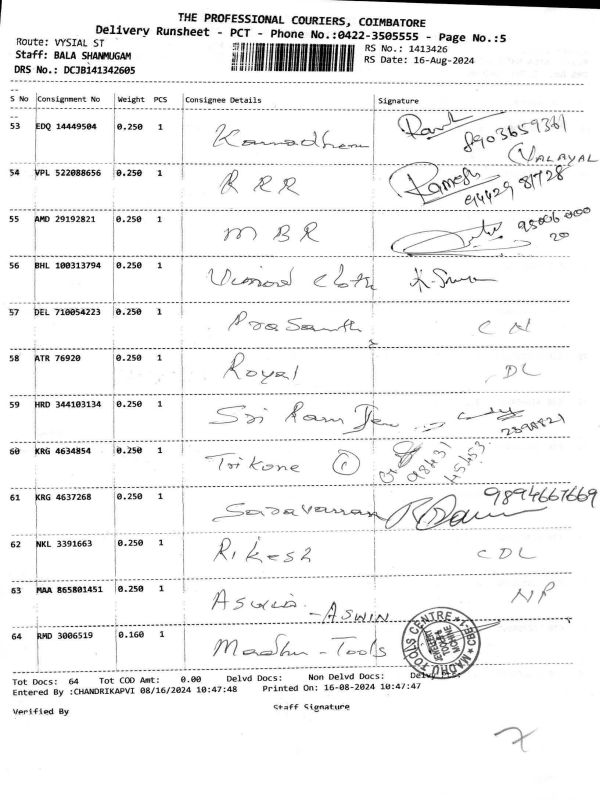 THE PROFESSIONAL COURIERS, COIMBATORE
Delivery Runsheet - PCT - Phone No.:0422-3505555 - Page No.:5
Route: VYSIAL ST
RS No.: 1413426
Staff: BALA SHANMUGAM
RS Date: 16-Aug-2024
DRS No.: DCJB141342605
S No Consignment No Weight PCS Consignee Details Signature
53 EDQ 14449504 0.250 1
8903659361
(VALAYAL
54 VPL 522088656 0.250 1 R R R Ramesh
94429 81728
55 AMD 29192821 0.250 1 M B R 95006 000
20
56 BHL 100313794 0.250 1 Cloth
57 DEL 710054223 0.250 1 Prasanth C N
58 ATR 76920 0.250 1 Royal DL
59 HRD 344103134 0.250 1 Sri Ram
60 KRG 4634854 0.250 1 Trikone 1
98431
45453
61 KRG 4637268 0.250 1 Saravanan 9894667669
62 NKL 3391663 0.250 1 Rikesh CDL
63 MAA 865801451 0.250 1 Aswin - ASWIN NP
64 RMD 3006519 0.160 1 Madhu - Tools
MADHU TOOLS CENTRE
CBE-1
Tot Docs: 64 Tot COD Amt: 0.00 Delvd Docs: Non Delvd Docs:
Entered By :CHANDRIKAPVI 08/16/2024 10:47:48 Printed On: 16-08-2024 10:47:47
Verified By Staff Signature
7